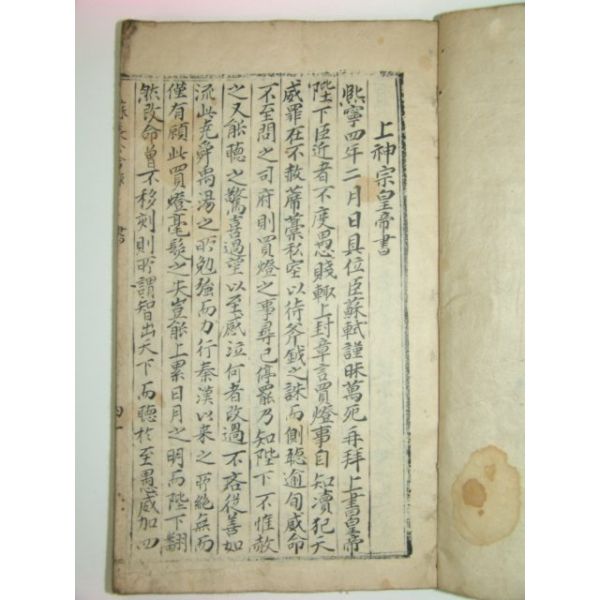 上神宗皇帝書
熙寧四年二月日具位臣蘇軾謹昧萬死再拜上書皇帝
陛下臣近者不度愚賤輒上封章言買燈事自知瀆犯天
威罪在不赦席藁私室以待斧鉞之誅而側聽逾旬威命
不至問之司府則買燈之事尋已停罷乃知陛下不惟赦
之又能聽之驚喜過望以至感泣何者改過不吝從善如
流此堯舜禹湯之所勉強而力行秦漢以來之所絶無而
僅有顧此買燈毫髮之失豈能上累日月之明而陛下翻
然改命曾不移刻則所謂智出天下而聽於至愚威加四
書